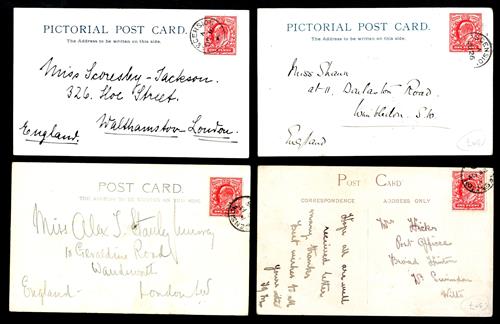 PICTORIAL POST CARD.
The Address to be written on this side.
Miss Scoresby-Jackson.
326. Hoe Street.
Walthamstow London.
England
PICTORIAL POST CARD.
The Address to be written on this side.
Miss Shaw
at 11, Road,
Wimbledon. S.W.
England
POST CARD.
THE ADDRESS TO BE WRITTEN ON THIS SIDE
Miss Alex T. Stanley Murray
10 Geraldine Road
Wandsworth
England London SW
POST CARD
CORRESPONDENCE ADDRESS ONLY
Hope all are well
received letter
many thanks
best wishes to all
Yours
Mr Hicks
Post Office
Broad Hinton
Nr Swindon
Wilts